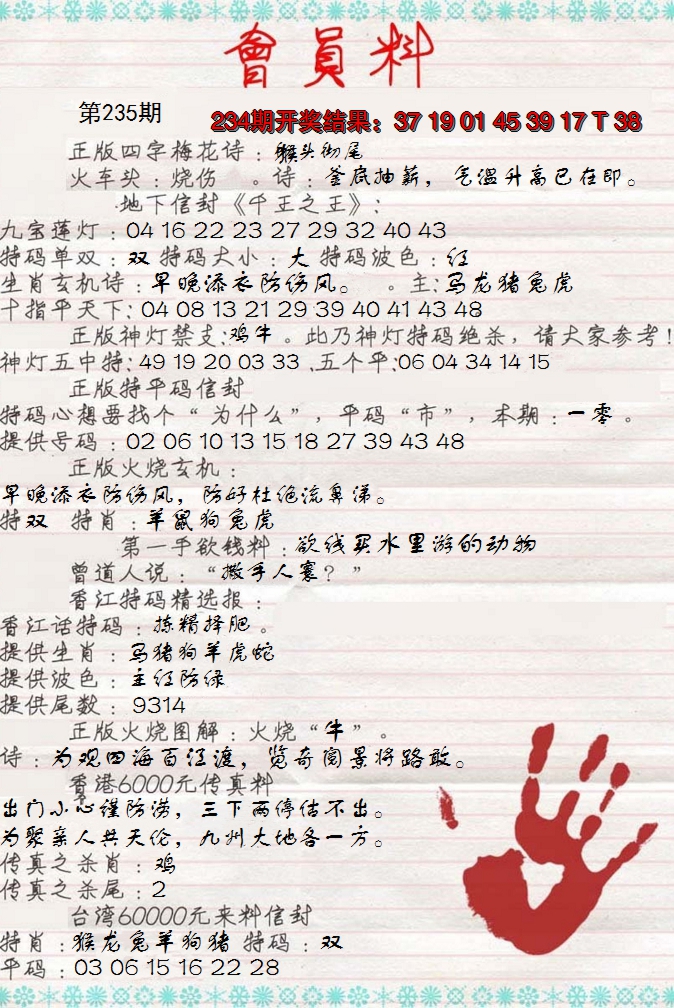 會員料
第235期
234期开奖结果：37 19 01 45 39 17 T 38
正版四字梅花诗：猴头彻尾
火车头：烧伤 。诗：釜底抽薪，气温升高已在即。
地下信封《千王之王》：
九宝莲灯：04 16 22 23 27 29 32 40 43
特码单双：双 特码大小：大 特码波色：红
生肖玄机诗：早晚添衣防伤风。 。主：马龙猪兔虎
十指平天下：04 08 13 21 29 39 40 41 43 48
正版神灯禁支：鸡牛 。此乃神灯特码绝杀，请大家参考！
神灯五中特：49 19 20 03 33 .五个平：06 04 34 14 15
正版特平码信封
特码心想要找个“为什么”，平码“市”，本期：一零 。
提供号码：02 06 10 13 15 18 27 39 43 48
正版火烧玄机：
早晚添衣防伤风，防好杜绝流鼻涕。
特双 特肖：羊鼠狗兔虎
第一手欲钱料：欲线买水里游的动物
曾道人说：“撒手人寰？”
香江特码精选报：
香江话特码：拣精择肥 。
提供生肖：马猪狗羊虎蛇
提供波色：主红防绿
提供尾数：9314
正版火烧图解：火烧“牛” 。
诗：为观四海百江渡，览奇阅景将路敢。
香港6000元传真料
出门小心谨防涝，三下两停估不出。
为聚亲人共天伦，九州大地各一方。
传真之杀肖：鸡
传真之杀尾：2
台湾60000元来料信封
特肖：猴龙兔羊狗猪 特码：双
平码：03 06 15 16 22 28